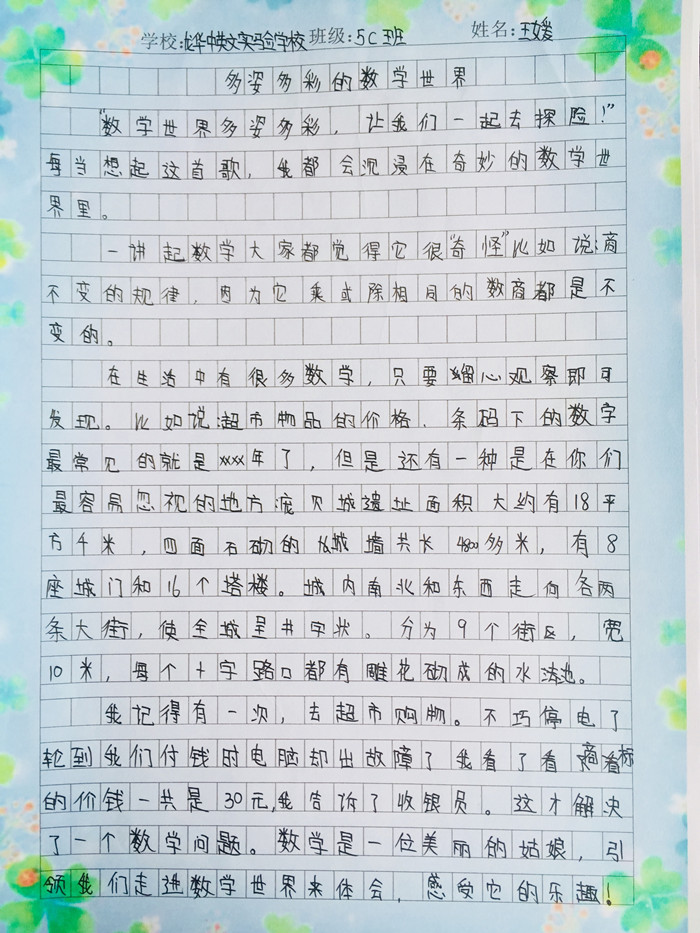 学校:龙华中英文实验学校 班级:5C班 姓名:王媛
多姿多彩的数学世界
“数学世界多姿多彩，让我们一起去探险！”
每当想起这首歌，我都会沉浸在奇妙的数学世
界里。
一讲起数学大家都觉得它很“奇怪”比如说:商
不变的规律，因为它乘或除相同的数商都是不
变的。
在生活中有很多数学，只要细心观察即可
发现。比如说:超市物品的价格、条码下的数字
最常见的就是xxxx年了，但是还有一种是在你们
最容易忽视的地方庞贝城遗址面积大约有18平
方千米，四面石砌的城墙共长4800多米，有8
座城门和16个塔楼。城内南北和东西走向各两
条大街，使全城呈井字状。分为9个街区，宽
10米，每个十字路口都有雕花砌成的水池。
我记得有一次，去超市购物。不巧停电了
轮到我们付钱时电脑却出故障了我看了看商标
的价钱一共是30元,我告诉了收银员。这才解决
了一个数学问题。数学是一位美丽的姑娘，引
领我们走进数学世界来体会，感受它的乐趣！